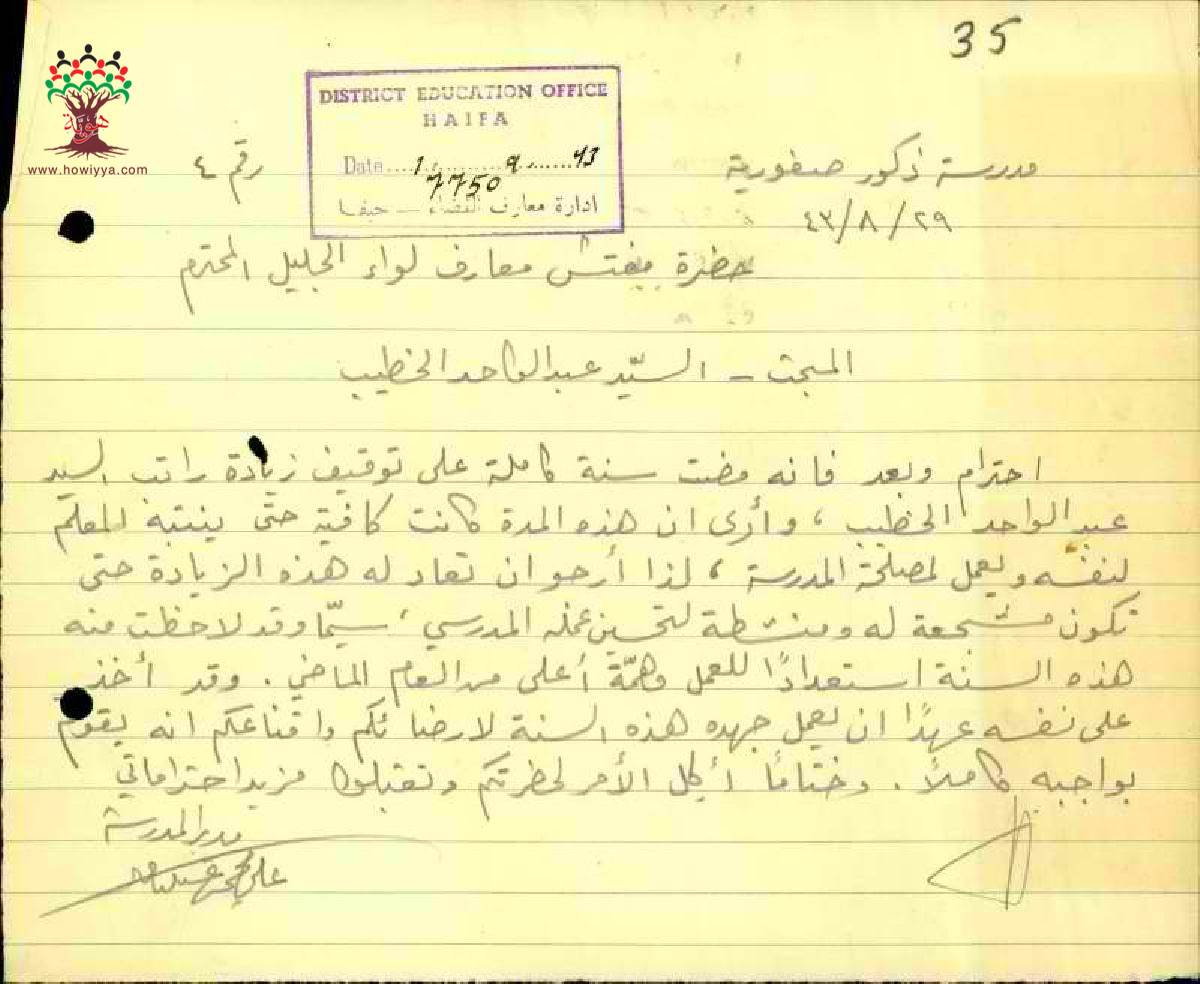 35
هوية
www.howiyya.com
DISTRICT EDUCATION OFFICE
HAIFA
Date 1. 9 43
7750
ادارة معارف القضاء — حيفا
مدرسة ذكور صفورية
رقم ٤
٤٣/٨/٢٩
حضرة مفتش معارف لواء الجليل المحترم
المبحث - السيّد عبد الواحد الخطيب
احترام وبعد فانه مضت سنة كاملة على توقيف زيادة راتب السيد
عبد الواحد الخطيب ، وأرى ان هذه المدة كانت كافية حتى ينتبه المعلم
لنفسه ويعمل لمصلحة المدرسة ، لذا أرجو ان تعاد له هذه الزيادة حتى
تكون مشجعة له ومنشطة لتحسين عمله المدرسي ، سيّما وقد لاحظت منه
هذه السنة استعدادًا للعمل وهمّة أعلى من العام الماضي . وقد أخذ
على نفسه عهدًا ان يعمل جهده هذه السنة لارضائكم واقناعكم انه يقوم
بواجبه كاملاً . وختامًا أكل الأمر لحضرتكم وتقبلوا مزيد احتراماتي
مدير المدرسة